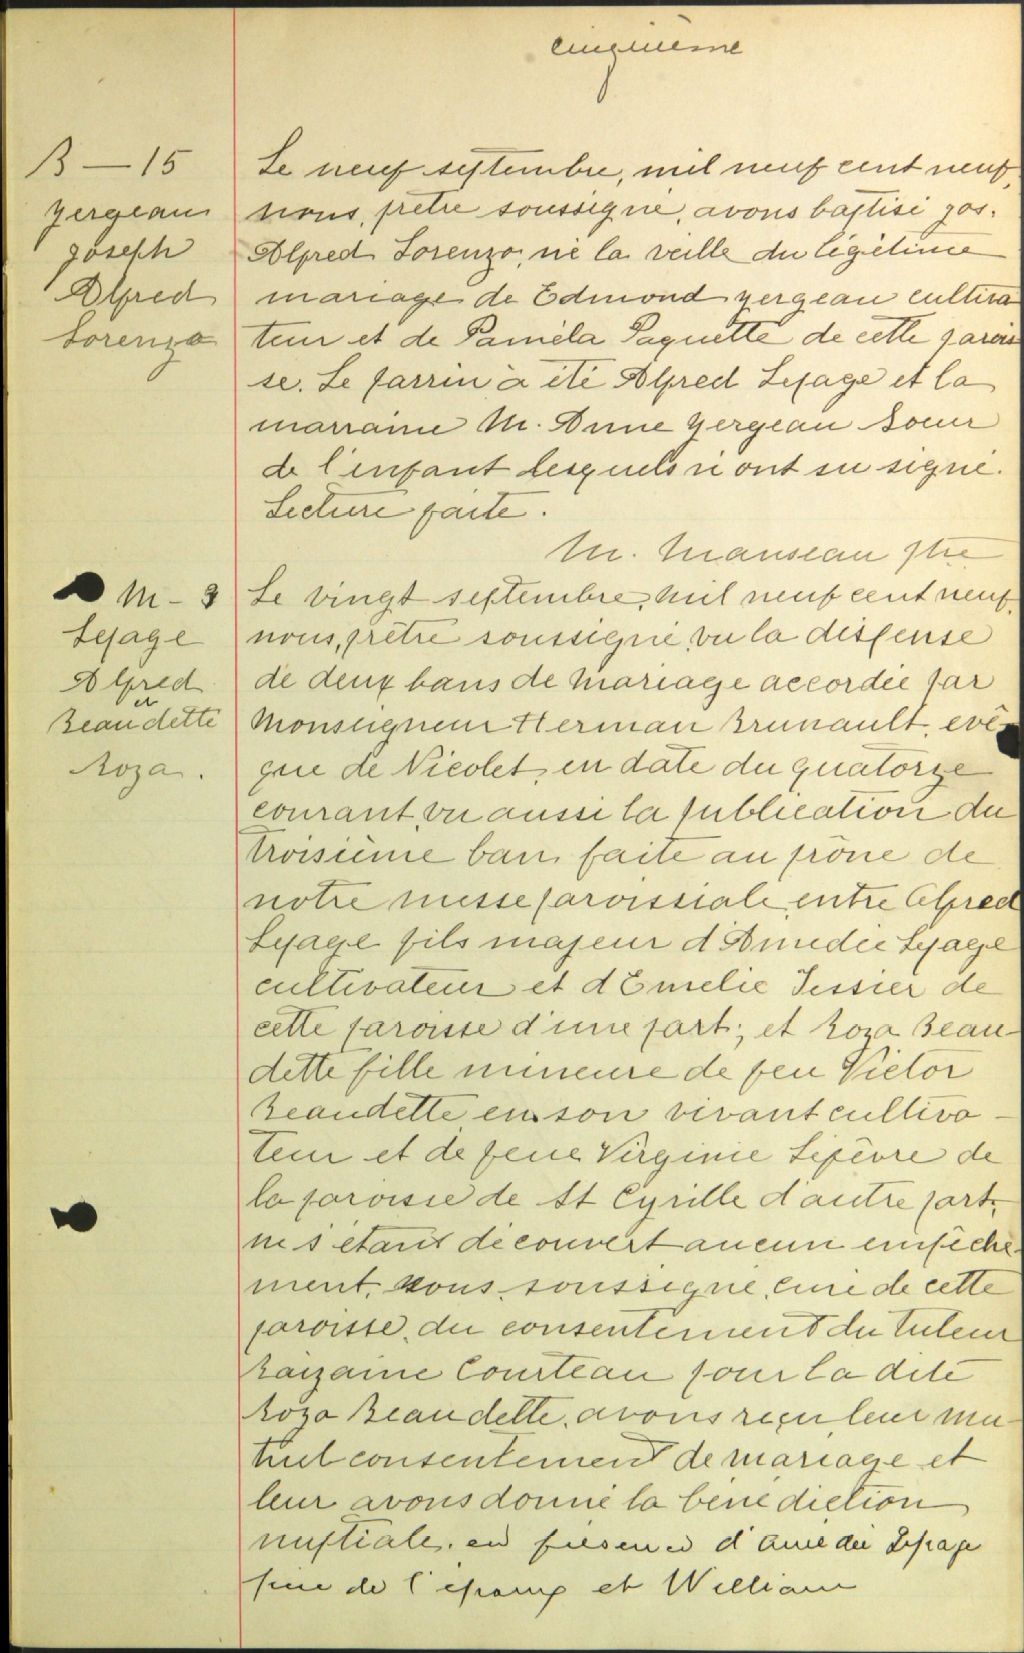 cinquième
B — 15
Yergeau
Joseph
Alfred
Lorenzo
Le neuf septembre, mil neuf cent neuf,
nous, prêtre soussigné, avons baptisé Jos.
Alfred Lorenzo, né la veille du légitime
mariage de Edmond Yergeau cultiva
teur et de Paméla Paquette de cette parois
se. Le parrin a été Alfred Lepage et la
marraine M. Anne Yergeau soeur
de l'enfant lesquels n'ont su signé.
Lecture faite.
M. Manseau ptre
M - 3
Lepage
Alfred
et
Beaudette
Roza.
Le vingt septembre, mil neuf cent neuf,
nous, prêtre soussigné, vu la dispense
de deux bans de mariage accordée par
Monseigneur Herman Brunault, evê-
que de Nicolet, en date du quatorze
courant, vu aussi la publication du
troisième ban faite au prône de
notre messe paroissiale, entre Alfred
Lepage fils majeur d'Amedée Lepage
cultivateur et d'Emelie Tessier de
cette paroisse d'une part; et Roza Beau-
dette fille mineure de feu Victor
Beaudette en son vivant cultiva-
teur et de feue Virginie Lefèvre de
la paroisse de St Cyrille d'autre part;
ne s'étant découvert aucun empêche-
ment, nous, soussigné, curé de cette
paroisse, du consentement du tuteur
Courteau pour la dite
Roza Beaudette, avons reçu leur mu-
tuel consentement de mariage et
leur avons donné la bénédiction
nuptiale, en présence d'Amédée Lepage
père de l'époux et William